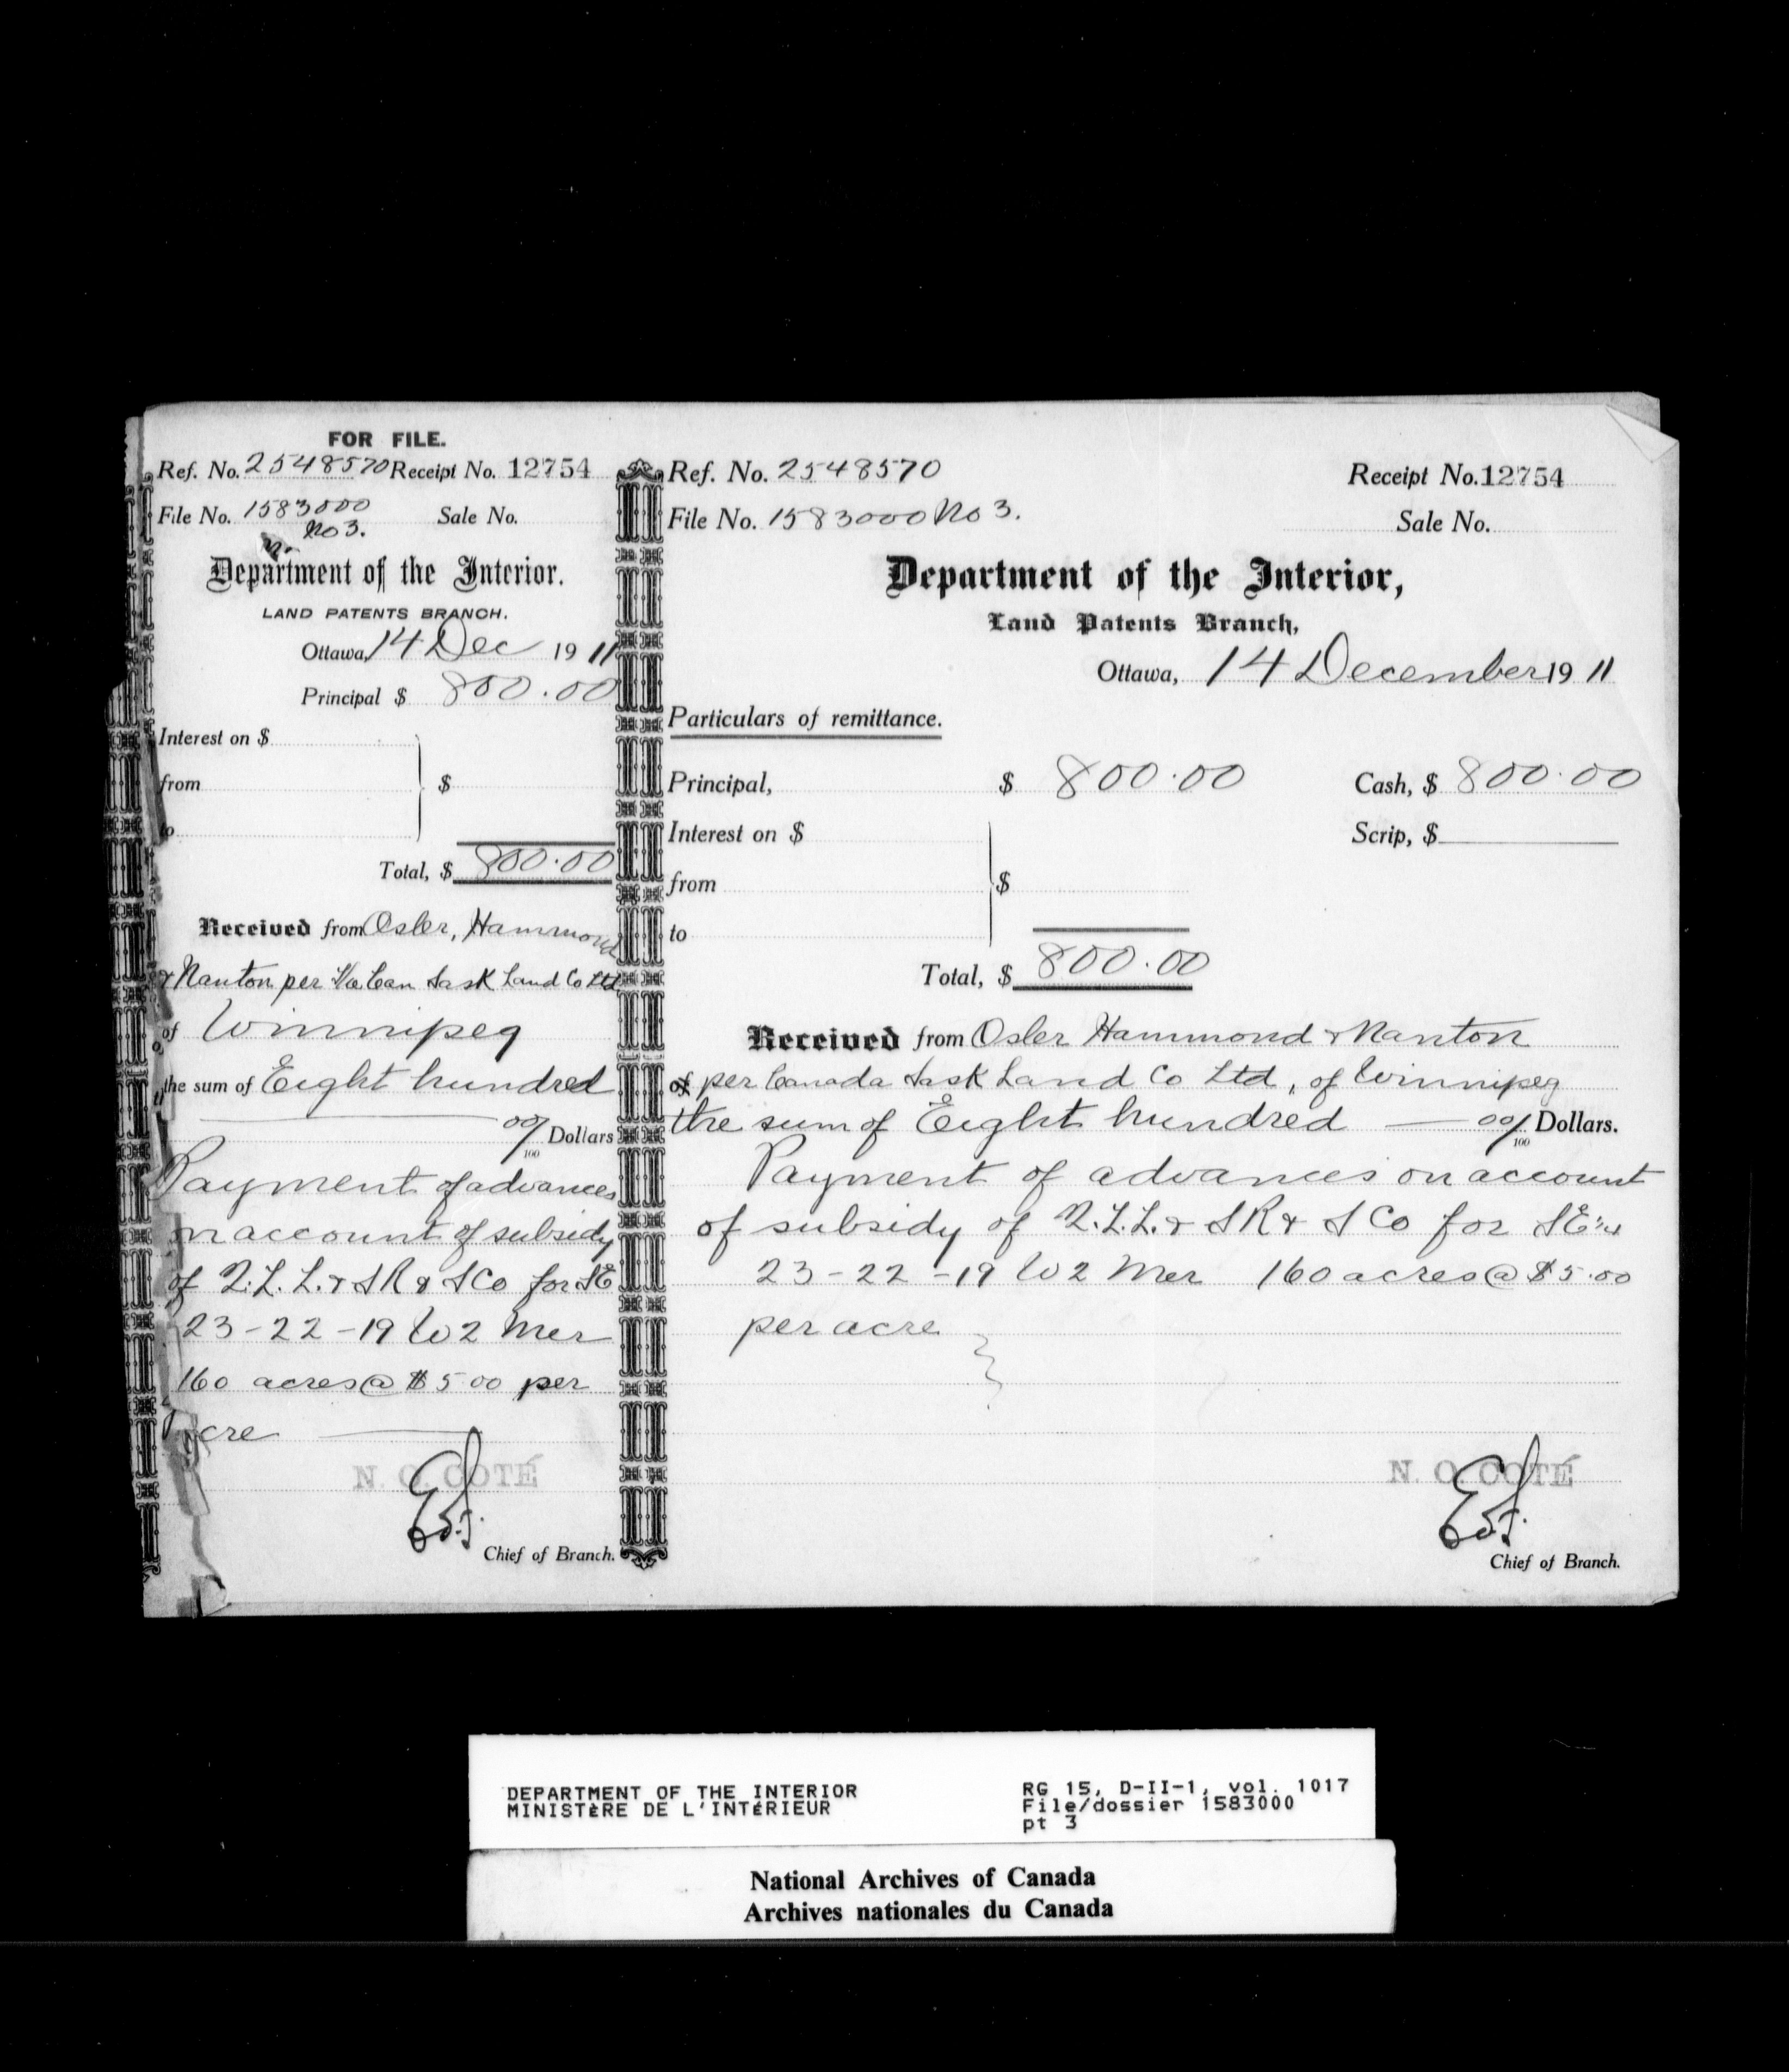 FOR FILE.
Ref. No. 2548570 Receipt No. 12754
File No. 1583000 Sale No.
No 3.
Department of the Interior.
LAND PATENTS BRANCH.
Ottawa, 14 Dec 1911
Principal $ 800.00
Interest on $
from $
to
Total, $ 800.00
Received from Osler, Hammond
& Nanton per The Can Sask Land Co Ltd
of Winnipeg
the sum of Eight hundred
00/100 Dollars
Payment of advances
on account of subsidy
of Q.L.L. & S R & S Co for SE
23-22-19 W2 Mer
160 acres @ $5.00 per
acre
N. O. COTÉ
Chief of Branch.
Ref. No. 2548570 Receipt No. 12754
File No. 1583000 No 3. Sale No.
Department of the Interior,
Land Patents Branch,
Ottawa, 14 December 1911
Particulars of remittance.
Principal, $ 800.00 Cash, $ 800.00
Interest on $ Scrip, $
from $
to
Total, $ 800.00
Received from Osler Hammond & Nanton
of per Canada Sask Land Co Ltd, of Winnipeg
the sum of Eight hundred — 00/100 Dollars.
Payment of advances on account
of subsidy of Q.L.L. & S R & S Co for SE 1/4
23-22-19 W2 Mer 160 acres @ $5.00
per acre
N. O. COTÉ
Chief of Branch.
DEPARTMENT OF THE INTERIOR RG 15, D-II-1, vol. 1017
MINISTÈRE DE L'INTÉRIEUR File/dossier 1583000
pt 3
National Archives of Canada
Archives nationales du Canada